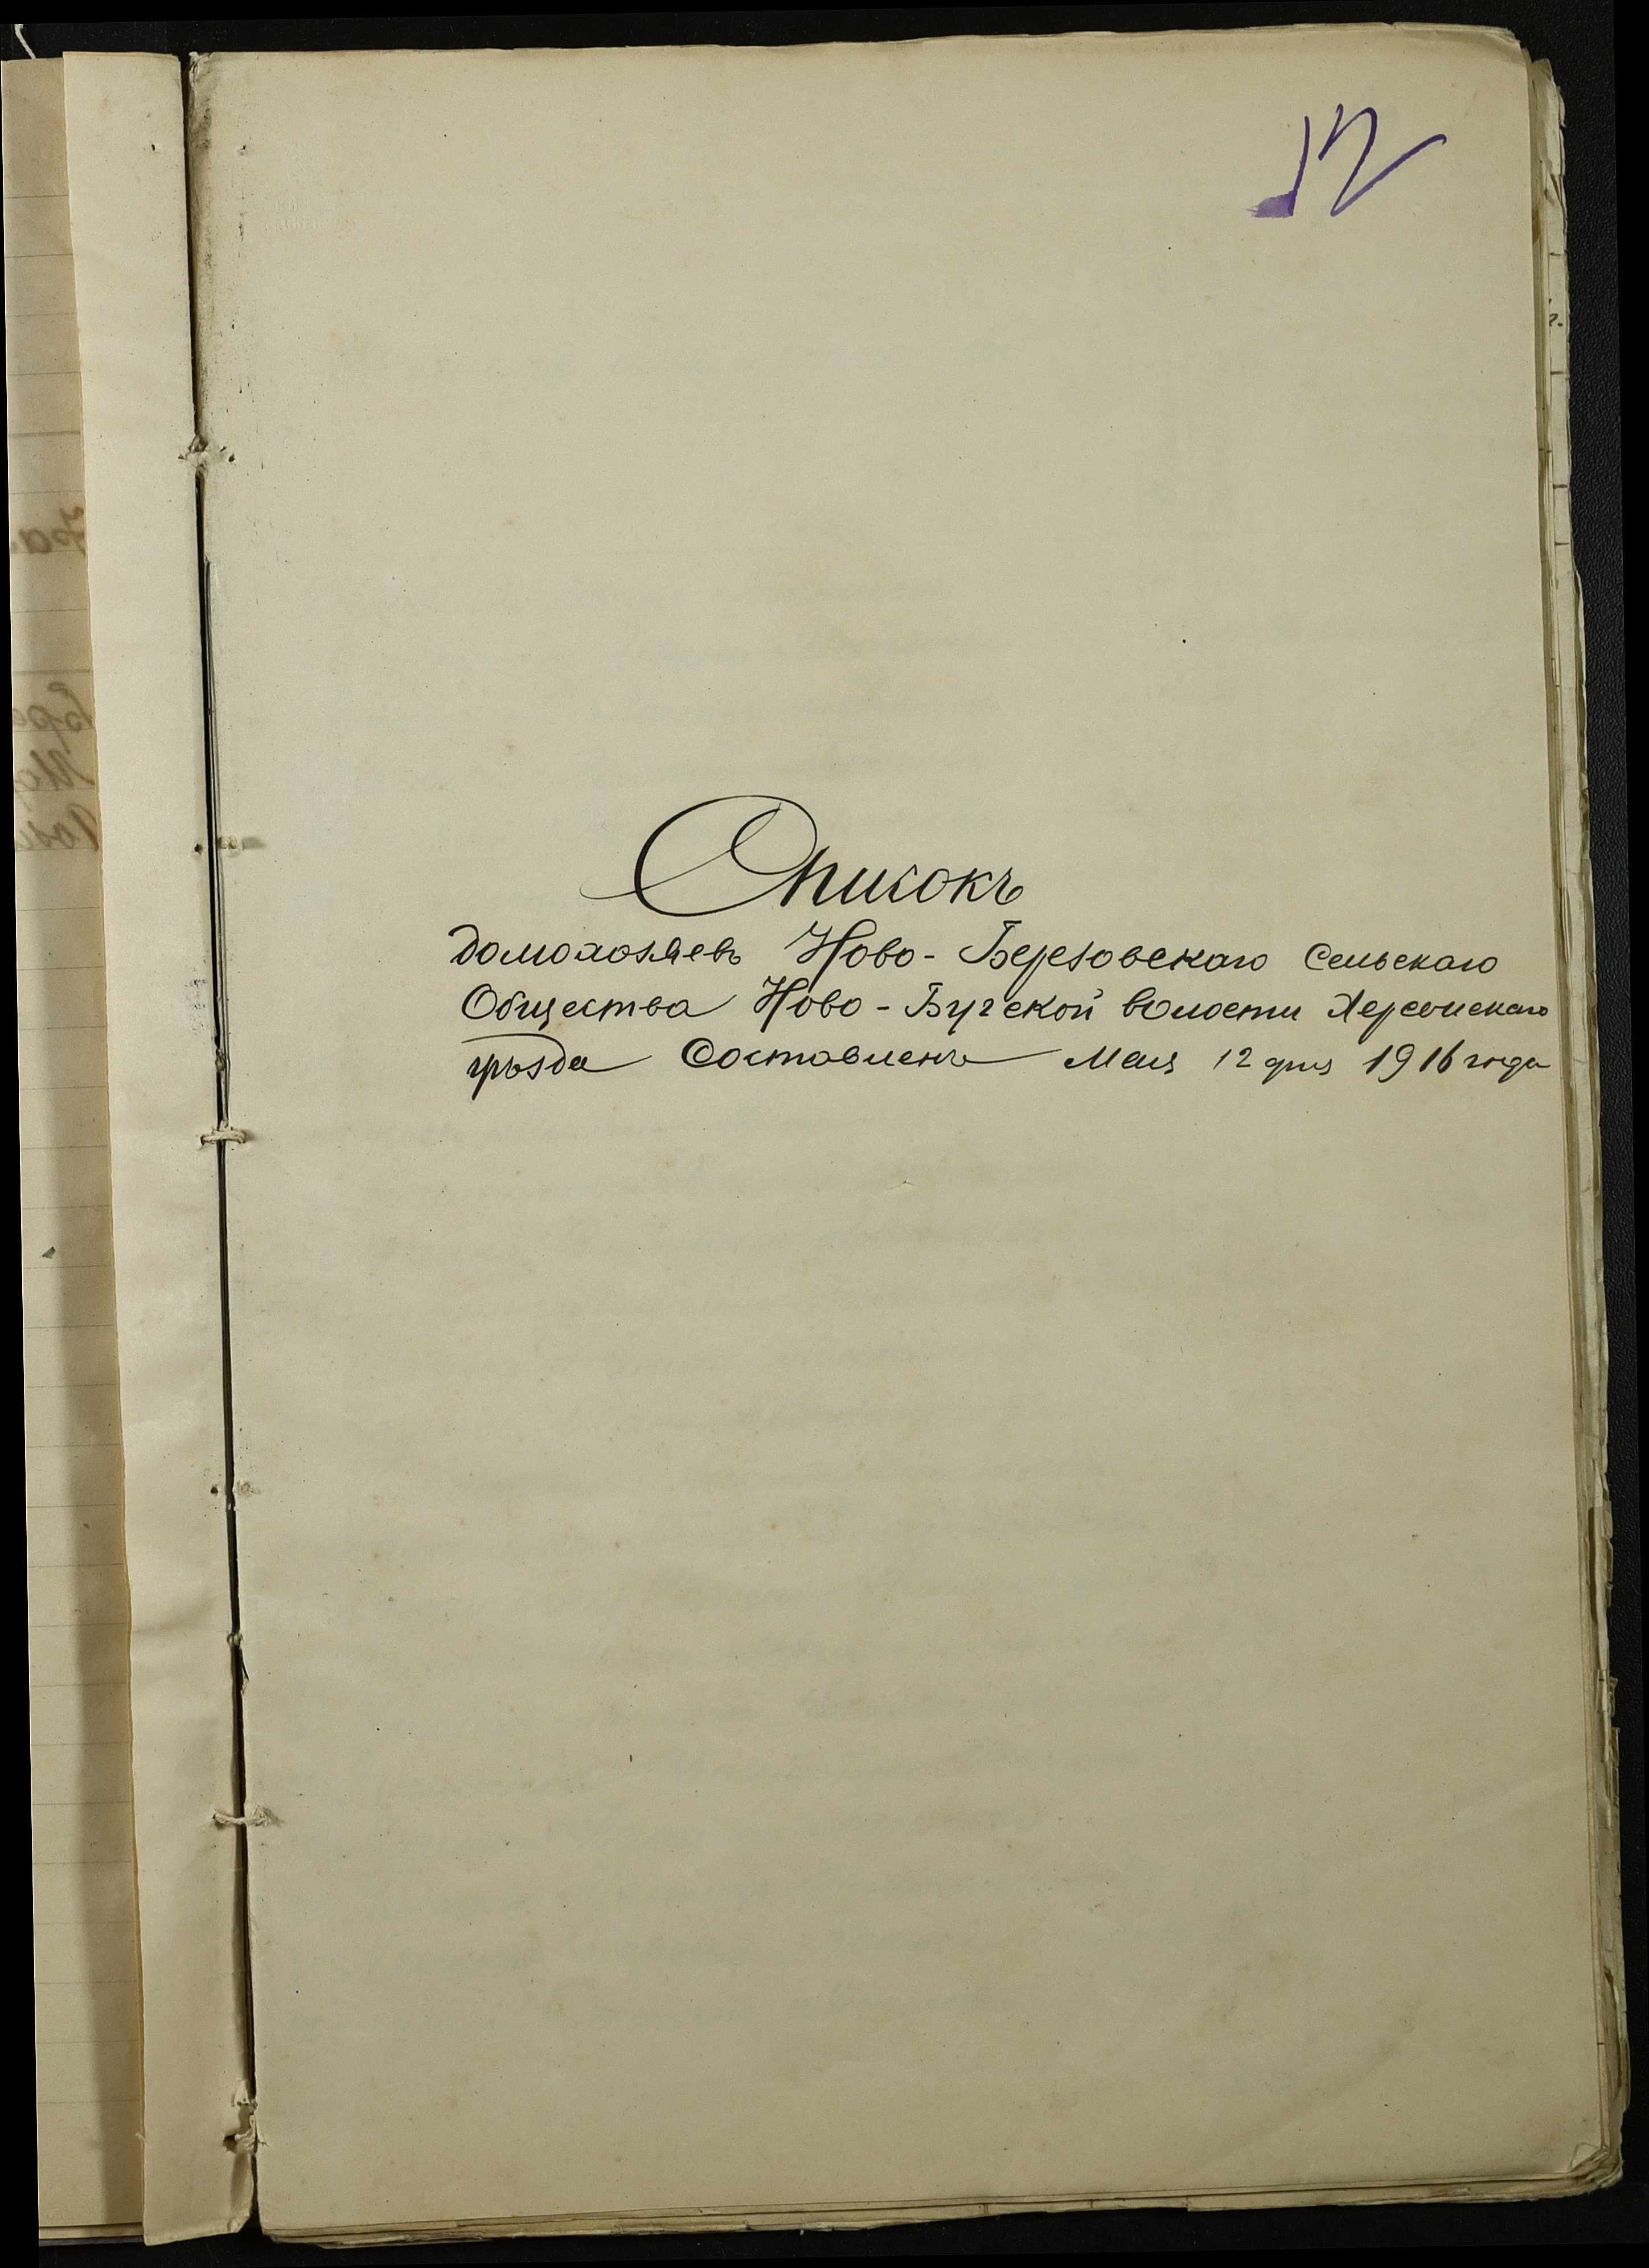 12
Списокъ
домохозяевъ Ново-Березовскаго Сельскаго
Общества Ново-Бугской волости Херсонскаго
уѣзда Составленъ Мая 12 дня 1916 года